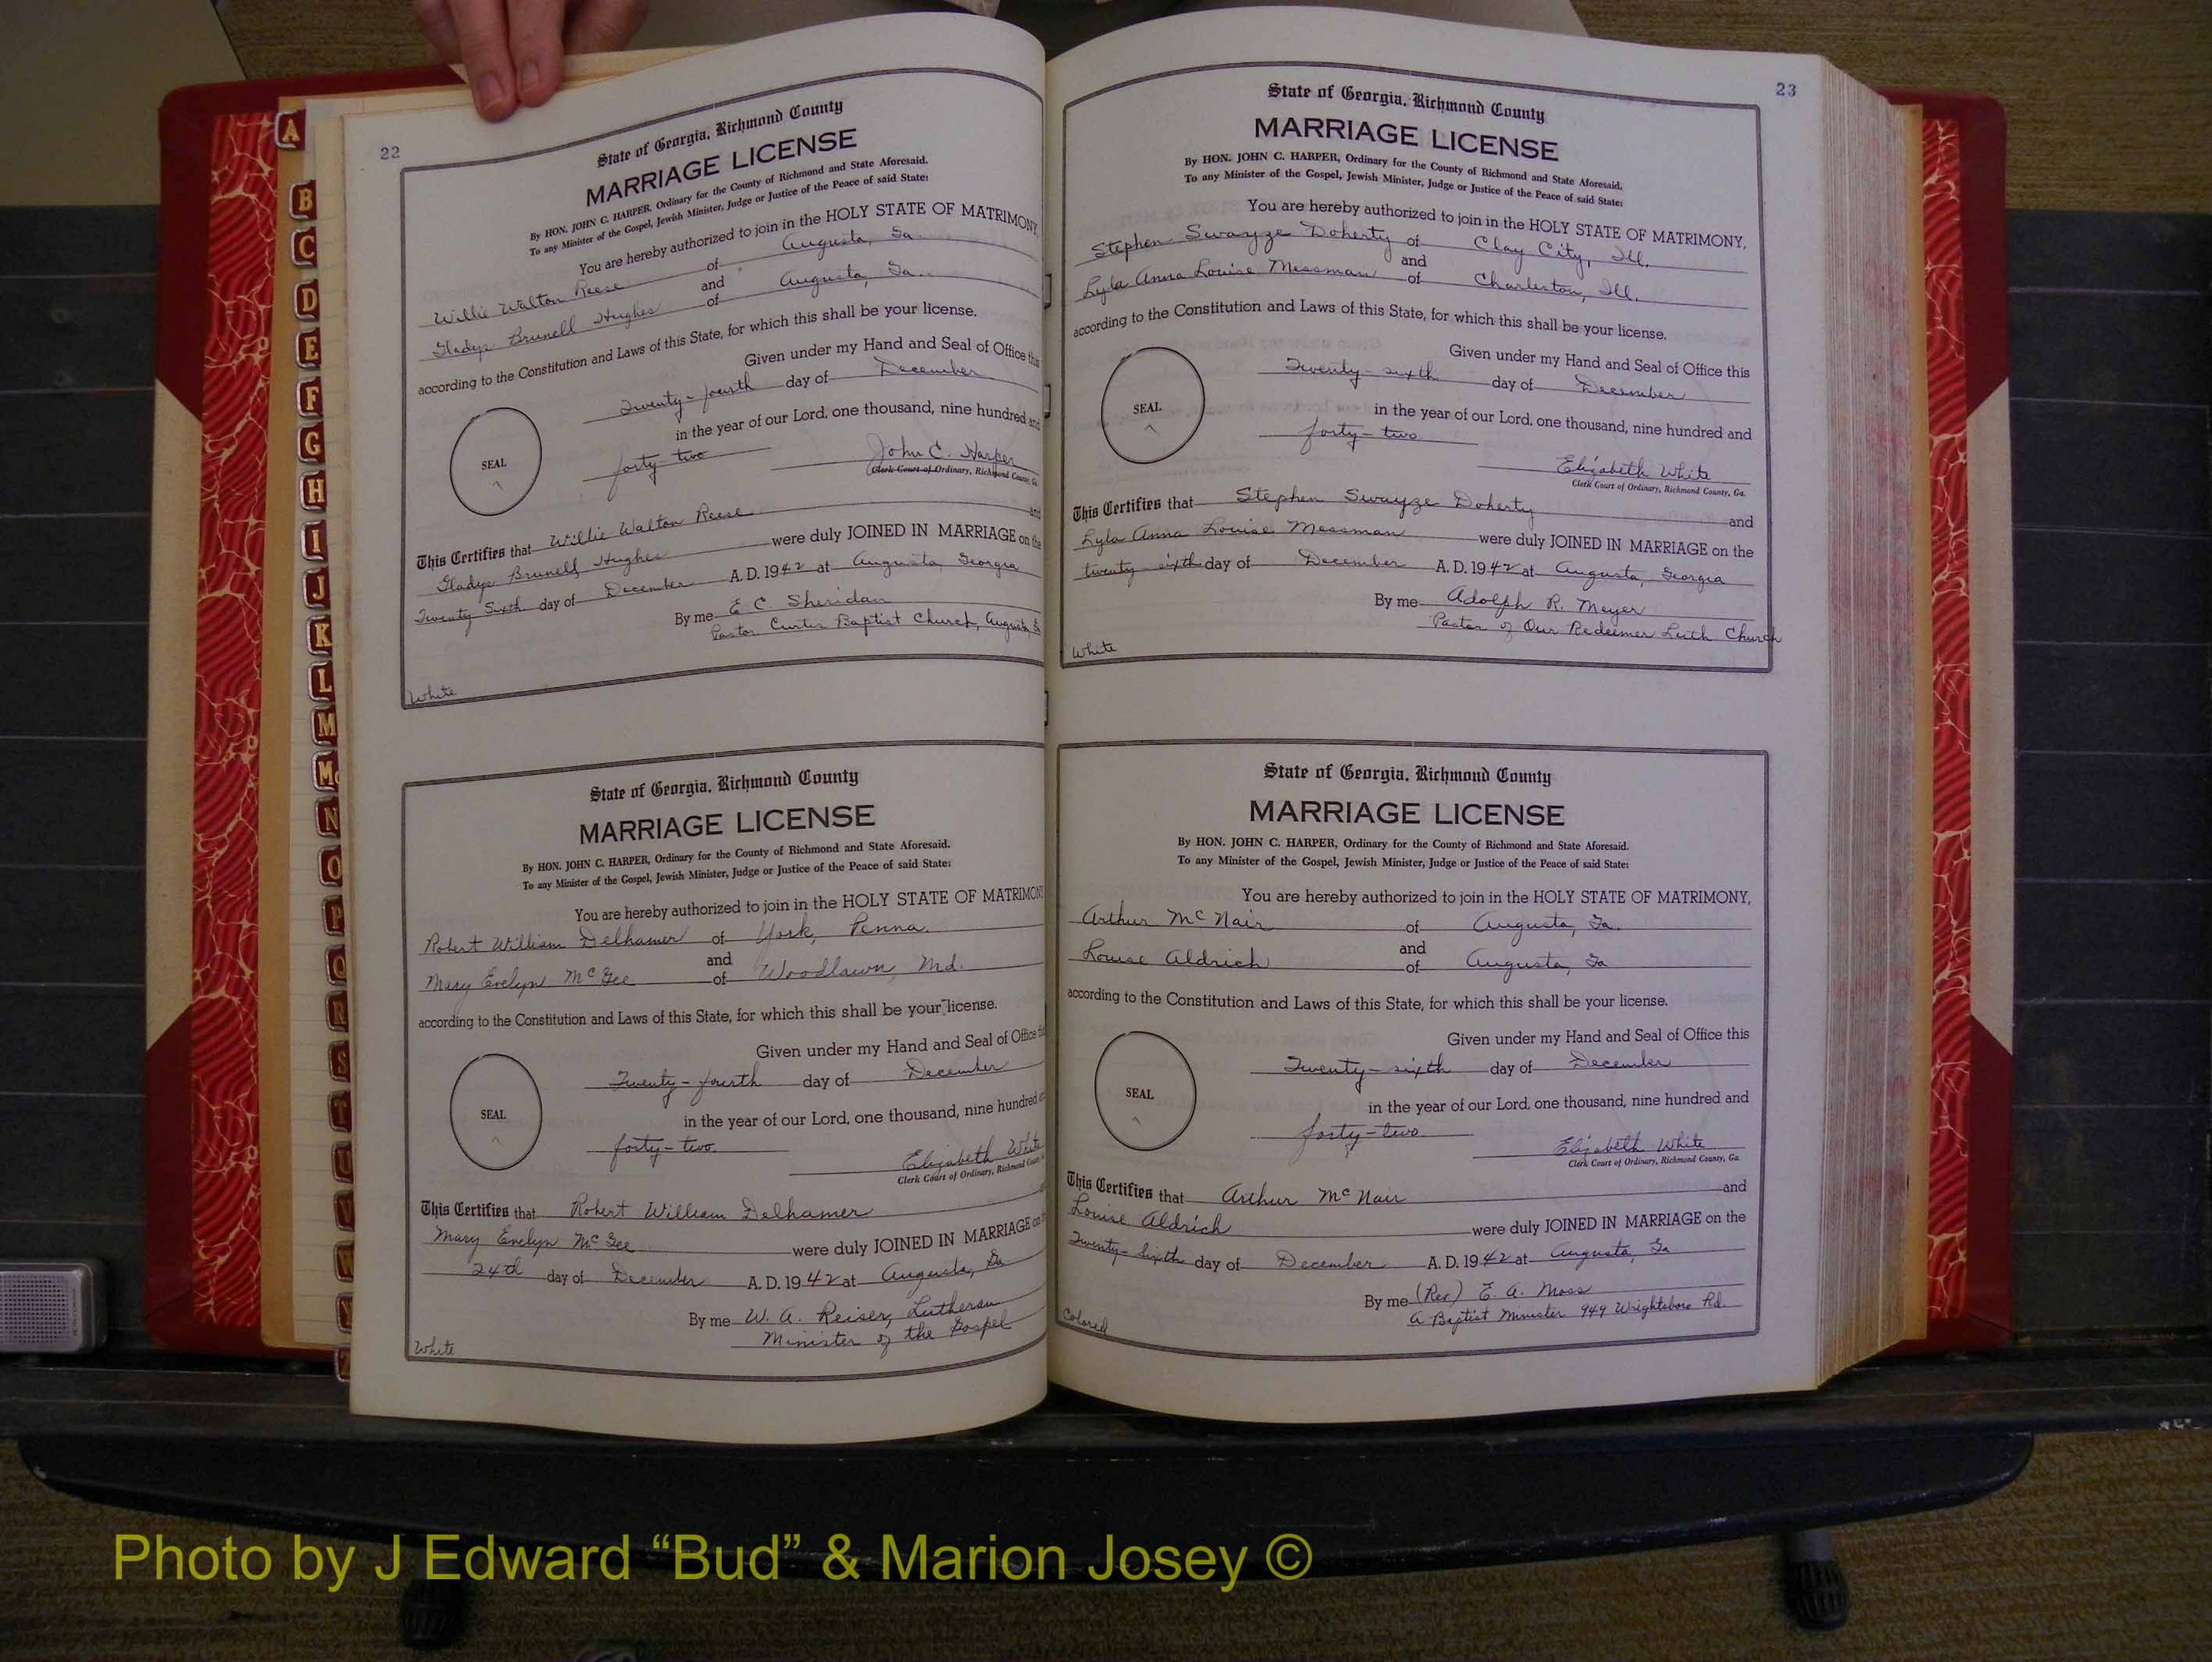 22
State of Georgia, Richmond County
MARRIAGE LICENSE
By HON. JOHN C. HARPER, Ordinary for the County of Richmond and State Aforesaid.
To any Minister of the Gospel, Jewish Minister, Judge or Justice of the Peace of said State:
You are hereby authorized to join in the HOLY STATE OF MATRIMONY,
Willie Walton Reese of Augusta, Ga.
and
Gladys Brunell Hughes of Augusta, Ga.
according to the Constitution and Laws of this State, for which this shall be your license.
Given under my Hand and Seal of Office this
Twenty-fourth day of December
in the year of our Lord, one thousand, nine hundred and
SEAL
forty two John C. Harper
Clerk Court of Ordinary, Richmond County, Ga.
This Certifies that Willie Walton Reese and
Gladys Brunell Hughes were duly JOINED IN MARRIAGE on the
Twenty Sixth day of December A. D. 1942 at Augusta, Georgia
By me E C. Sheridan
Pastor Curtis Baptist Church, Augusta
White
State of Georgia, Richmond County
MARRIAGE LICENSE
By HON. JOHN C. HARPER, Ordinary for the County of Richmond and State Aforesaid.
To any Minister of the Gospel, Jewish Minister, Judge or Justice of the Peace of said State:
You are hereby authorized to join in the HOLY STATE OF MATRIMON
Robert William Delhamer of York, Penna.
and
Mary Evelyn McGee of Woodlawn, Md.
according to the Constitution and Laws of this State, for which this shall be your license.
Given under my Hand and Seal of Office
Twenty-fourth day of December
in the year of our Lord, one thousand, nine hundred
SEAL
forty-two Elizabeth White
Clerk Court of Ordinary, Richmond County
This Certifies that Robert William Delhamer
Mary Evelyn McGee were duly JOINED IN MARRIAGE on
24th day of December A. D. 1942 at Augusta, Ga.
By me W. A. Reiser, Lutheran
Minister of the Gospel
White
23
State of Georgia, Richmond County
MARRIAGE LICENSE
By HON. JOHN C. HARPER, Ordinary for the County of Richmond and State Aforesaid.
To any Minister of the Gospel, Jewish Minister, Judge or Justice of the Peace of said State:
You are hereby authorized to join in the HOLY STATE OF MATRIMONY,
Stephen Swayze Doherty of Clay City, Ill.
and
Lyla Anna Louise Messman of Charleston, Ill.
according to the Constitution and Laws of this State, for which this shall be your license.
Given under my Hand and Seal of Office this
Twenty-sixth day of December
SEAL
in the year of our Lord, one thousand, nine hundred and
forty-two
Elizabeth White
Clerk Court of Ordinary, Richmond County, Ga.
This Certifies that Stephen Swayze Doherty and
Lyla Anna Louise Messman were duly JOINED IN MARRIAGE on the
twenty-sixth day of December A. D. 1942 at Augusta, Georgia
By me Adolph R. Meyer
Pastor of Our Redeemer Luth Church
White
State of Georgia, Richmond County
MARRIAGE LICENSE
By HON. JOHN C. HARPER, Ordinary for the County of Richmond and State Aforesaid.
To any Minister of the Gospel, Jewish Minister, Judge or Justice of the Peace of said State:
You are hereby authorized to join in the HOLY STATE OF MATRIMONY,
Arthur McNair of Augusta, Ga.
and
Louise Aldrich of Augusta, Ga
according to the Constitution and Laws of this State, for which this shall be your license.
Given under my Hand and Seal of Office this
Twenty-sixth day of December
SEAL
in the year of our Lord, one thousand, nine hundred and
forty-two Elizabeth White
Clerk Court of Ordinary, Richmond County, Ga.
This Certifies that Arthur McNair and
Louise Aldrich were duly JOINED IN MARRIAGE on the
Twenty-Sixth day of December A. D. 1942 at Augusta, Ga
By me (Rev) E. A. Moss
A Baptist Minister 949 Wrightsboro Rd.
Colored
A
B
C
D
E
F
G
H
I
J
K
L
M
Mc
N
O
P
Q
R
S
T
U
V
W
Y
Z
Photo by J Edward “Bud” & Marion Josey ©